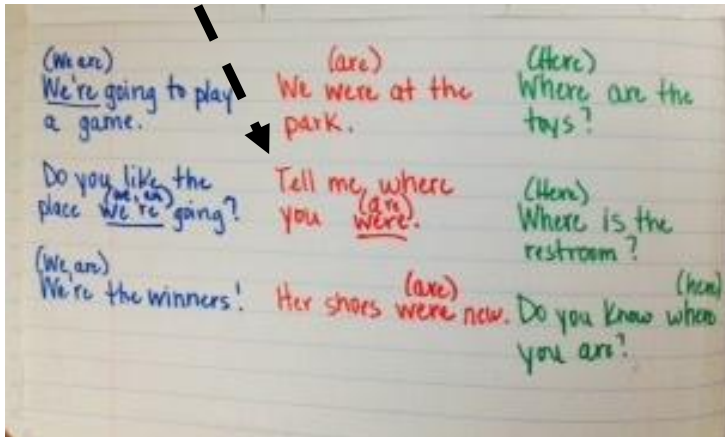 (We are)
We're going to play
a game.
Do you like the
(we are)
place we're going?
(We are)
We're the winners!
(are)
We were at the
park.
Tell me, where
(are)
you were.
(are)
Her shoes were new.
(Here)
Where are the
toys?
(Here)
Where is the
restroom?
(here)
Do you know where
you are?